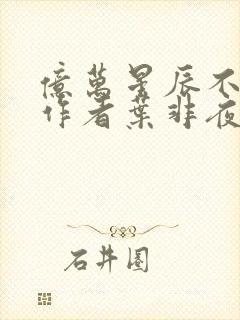 億萬星辰不
作者葉非夜
石井圖